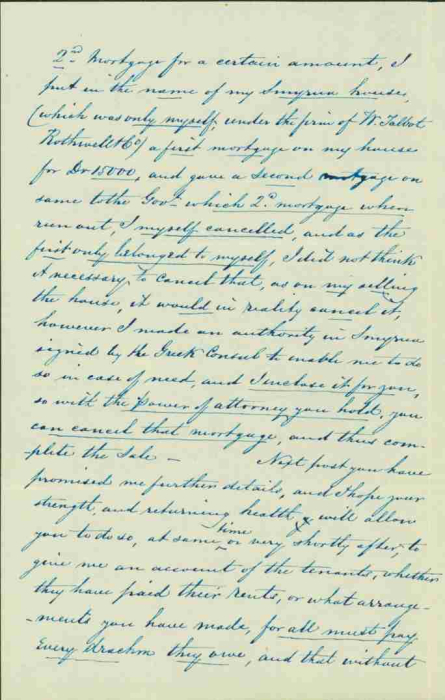 2d Mortgage for a certain amount, I
put in the name of my Smyrna house,
(which was only myself, under the firm of W. Talbot
Rothwell & Co) a first mortgage on my house
for Dr 15000, and gave a second mortgage on
same to the Govt. which 2d mortgage when
run out, I myself cancelled, and as the
first only belonged to myself, I did not think
it necessary to cancel that, as on my selling
the house, it would in reality cancel it,
however I made an authority in Smyrna
signed by the Greek Consul to enable me to do
so in case of need, and I inclose it for you,
so with the Power of attorney you hold, you
can cancel that mortgage, and thus com-
plete the Sale — Next post you have
promised me further details, and I hope your
strength, and returning health, will allow
you to do so, at same time or very shortly after, to
give me an account of the tenants, whether
they have paid their rents, or what arrange-
-ments you have made, for all must pay
Every drachm they owe, and that without